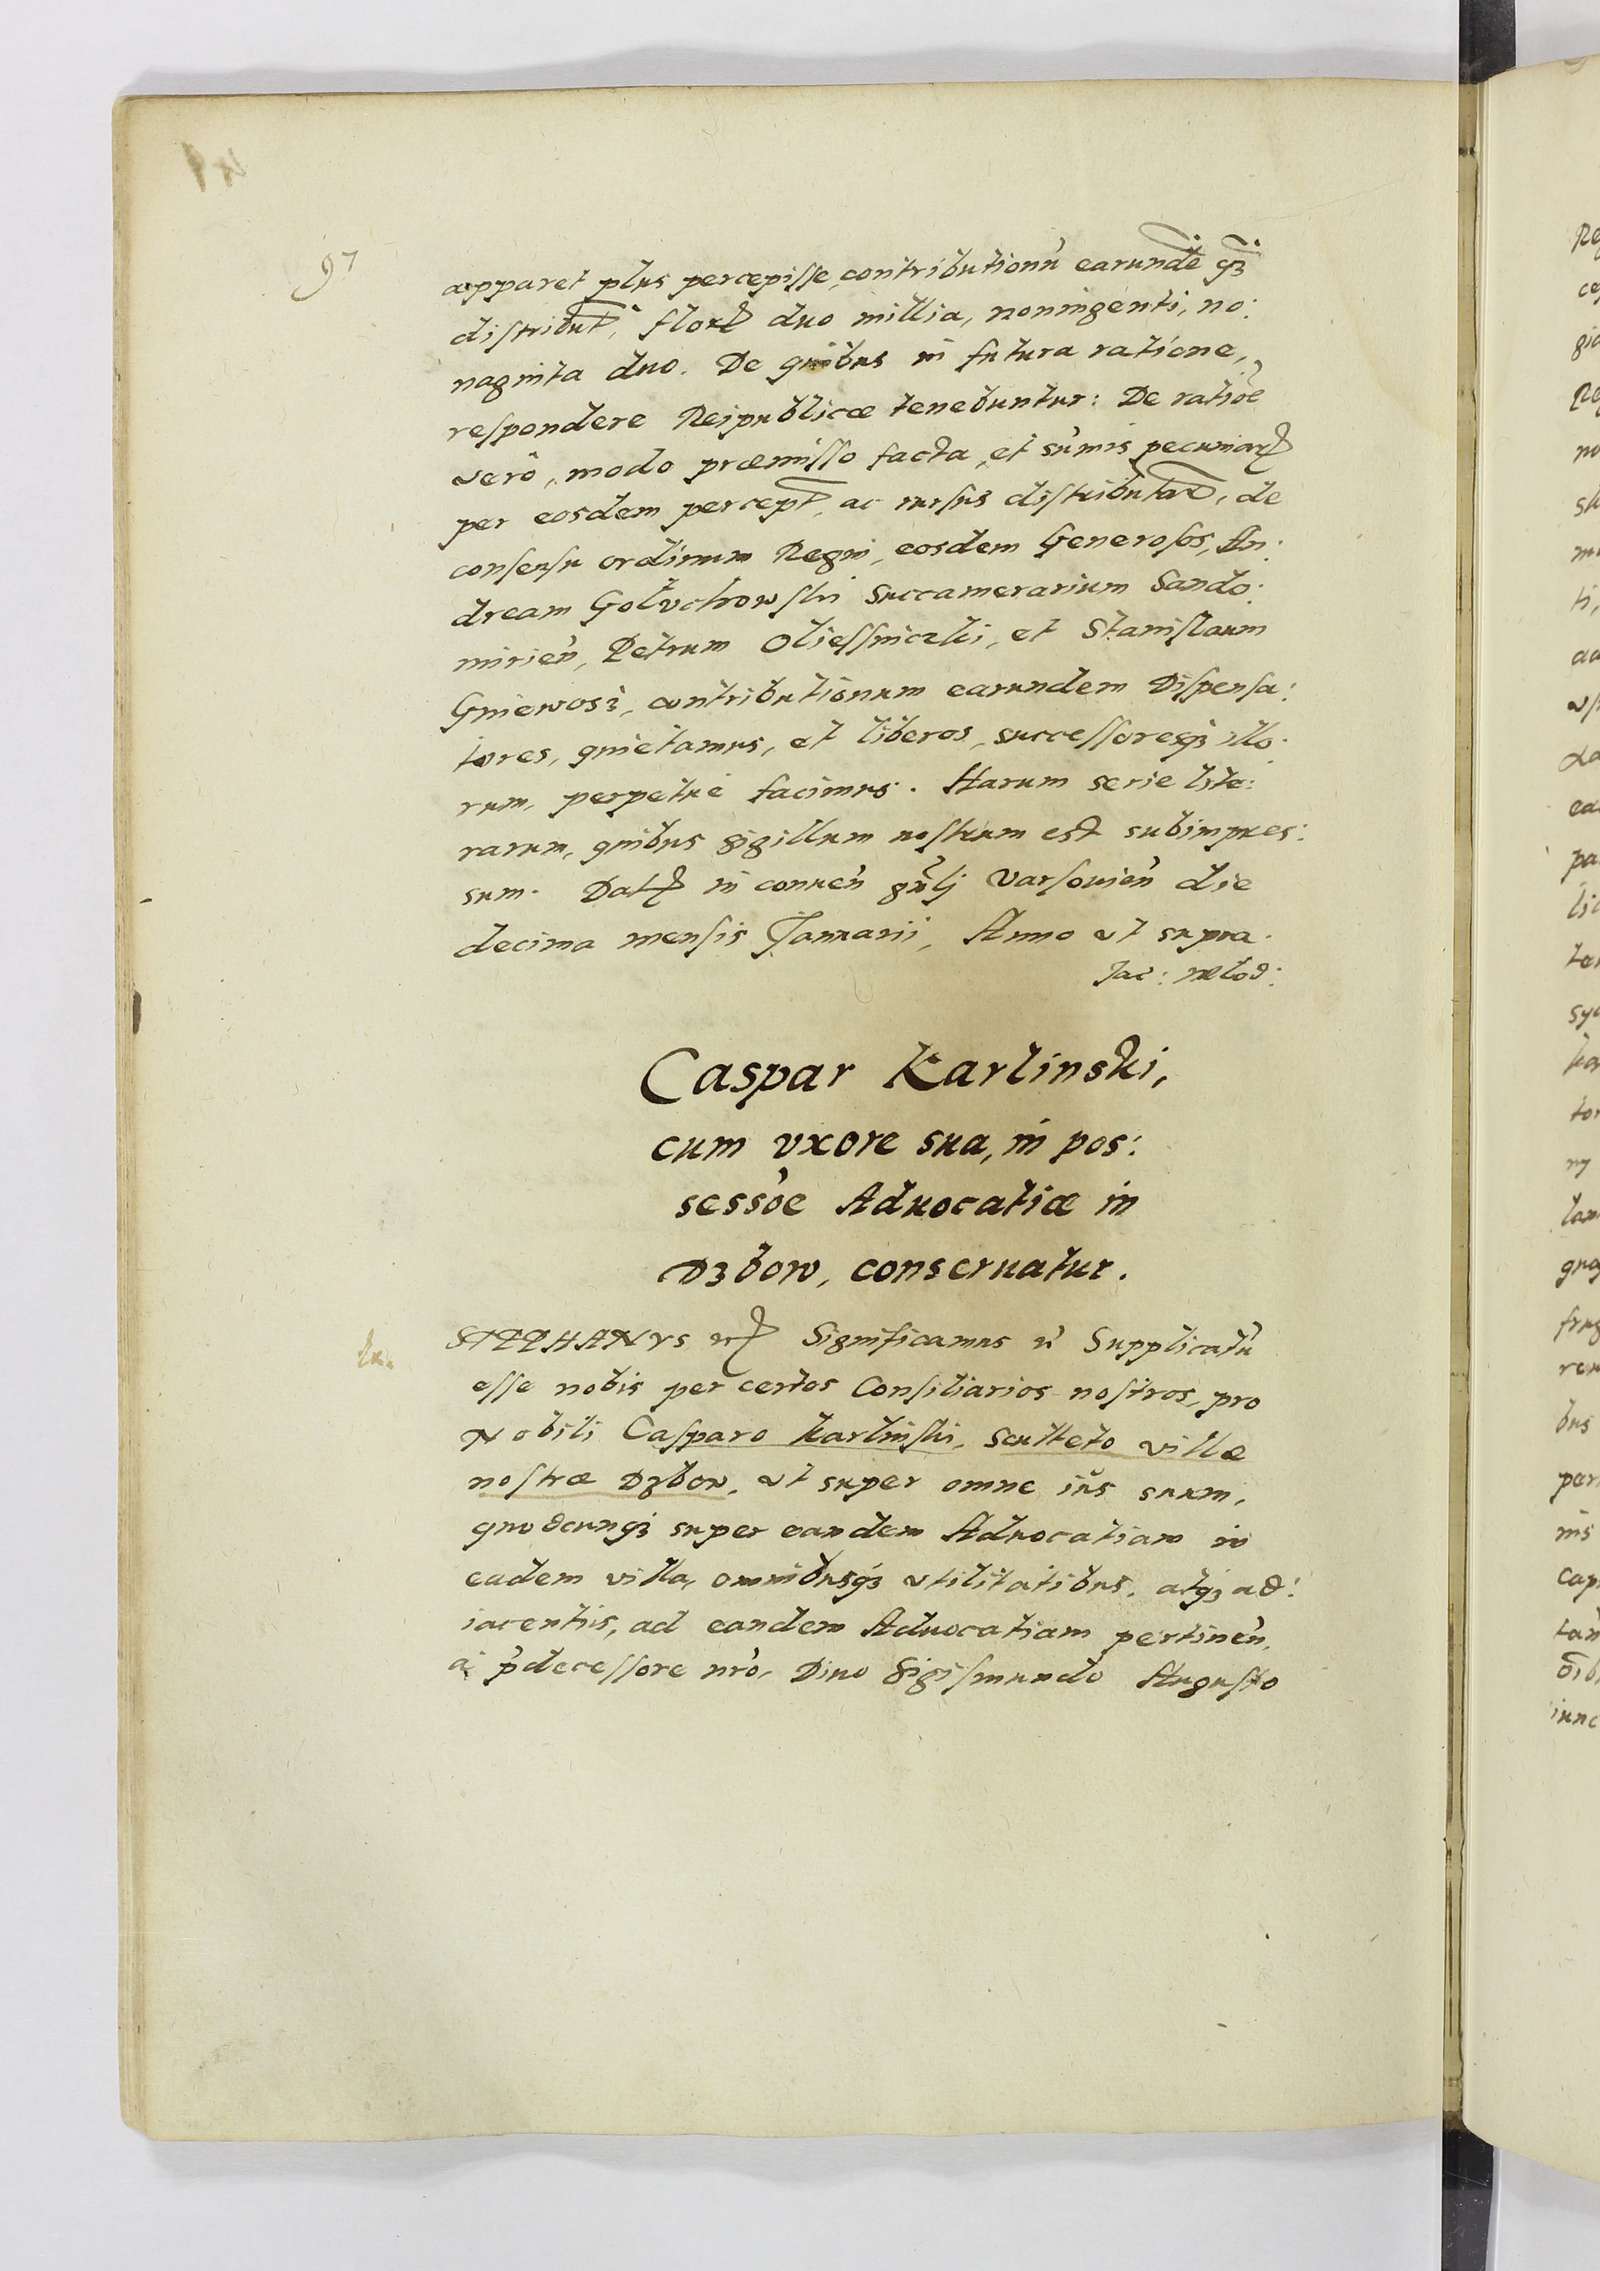 97
apparet plus percepisse, contributionũ earundẽ q̃ꝫ
distribut, florꝫ duo millia, noningenti, no:
naginta duo. De quibus in futura ratione,
respondere Reipublicæ tenebuntur: De ratiõe
verò, modo præmisso facta, et sũmis pecuniarꝫ
per eosdem percept, ac rursus distributar, de
consensu ordinum Regni, eosdem Generosos, An:
dream Golvchowski Succamerarium Sando:
mirieñ, Petrum Oliessniczki, et Stanislaum
Gniewosz, contributionum earundem Dispensa:
tores, quietamus, et liberos, successoresqꝫ illo:
rum, perpetuè facimus. Harum serie lite:
rarum, quibus sigillum nostrum est subimpres:
sum. Datꝫ in conueñ gñlj Varsouieñ die
decima mensis Januarii, Anno vt supra.
Caspar Karlinski,
cum vxore sua, in pos:
sessõe Aduocatiæ in
Dzbow, conseruatur.
STEPHANVS etꝫ Significamus etꝫ Supplicatũ
esse nobis per certos Consiliarios nostros, pro
Nobili Casparo Karlinski, Sculteto villæ
nostræ Dzbow, vt super omne iùs suum,
quodcunqꝫ super eandem Aduocatiam in
eadem villa, omnibusqꝫ vtilitatibus, atqꝫ ad:
iacentiis, ad eandem Aduocatiam pertineñ,
à p̃decessore nrõ, Diuo Sigismundo Augusto